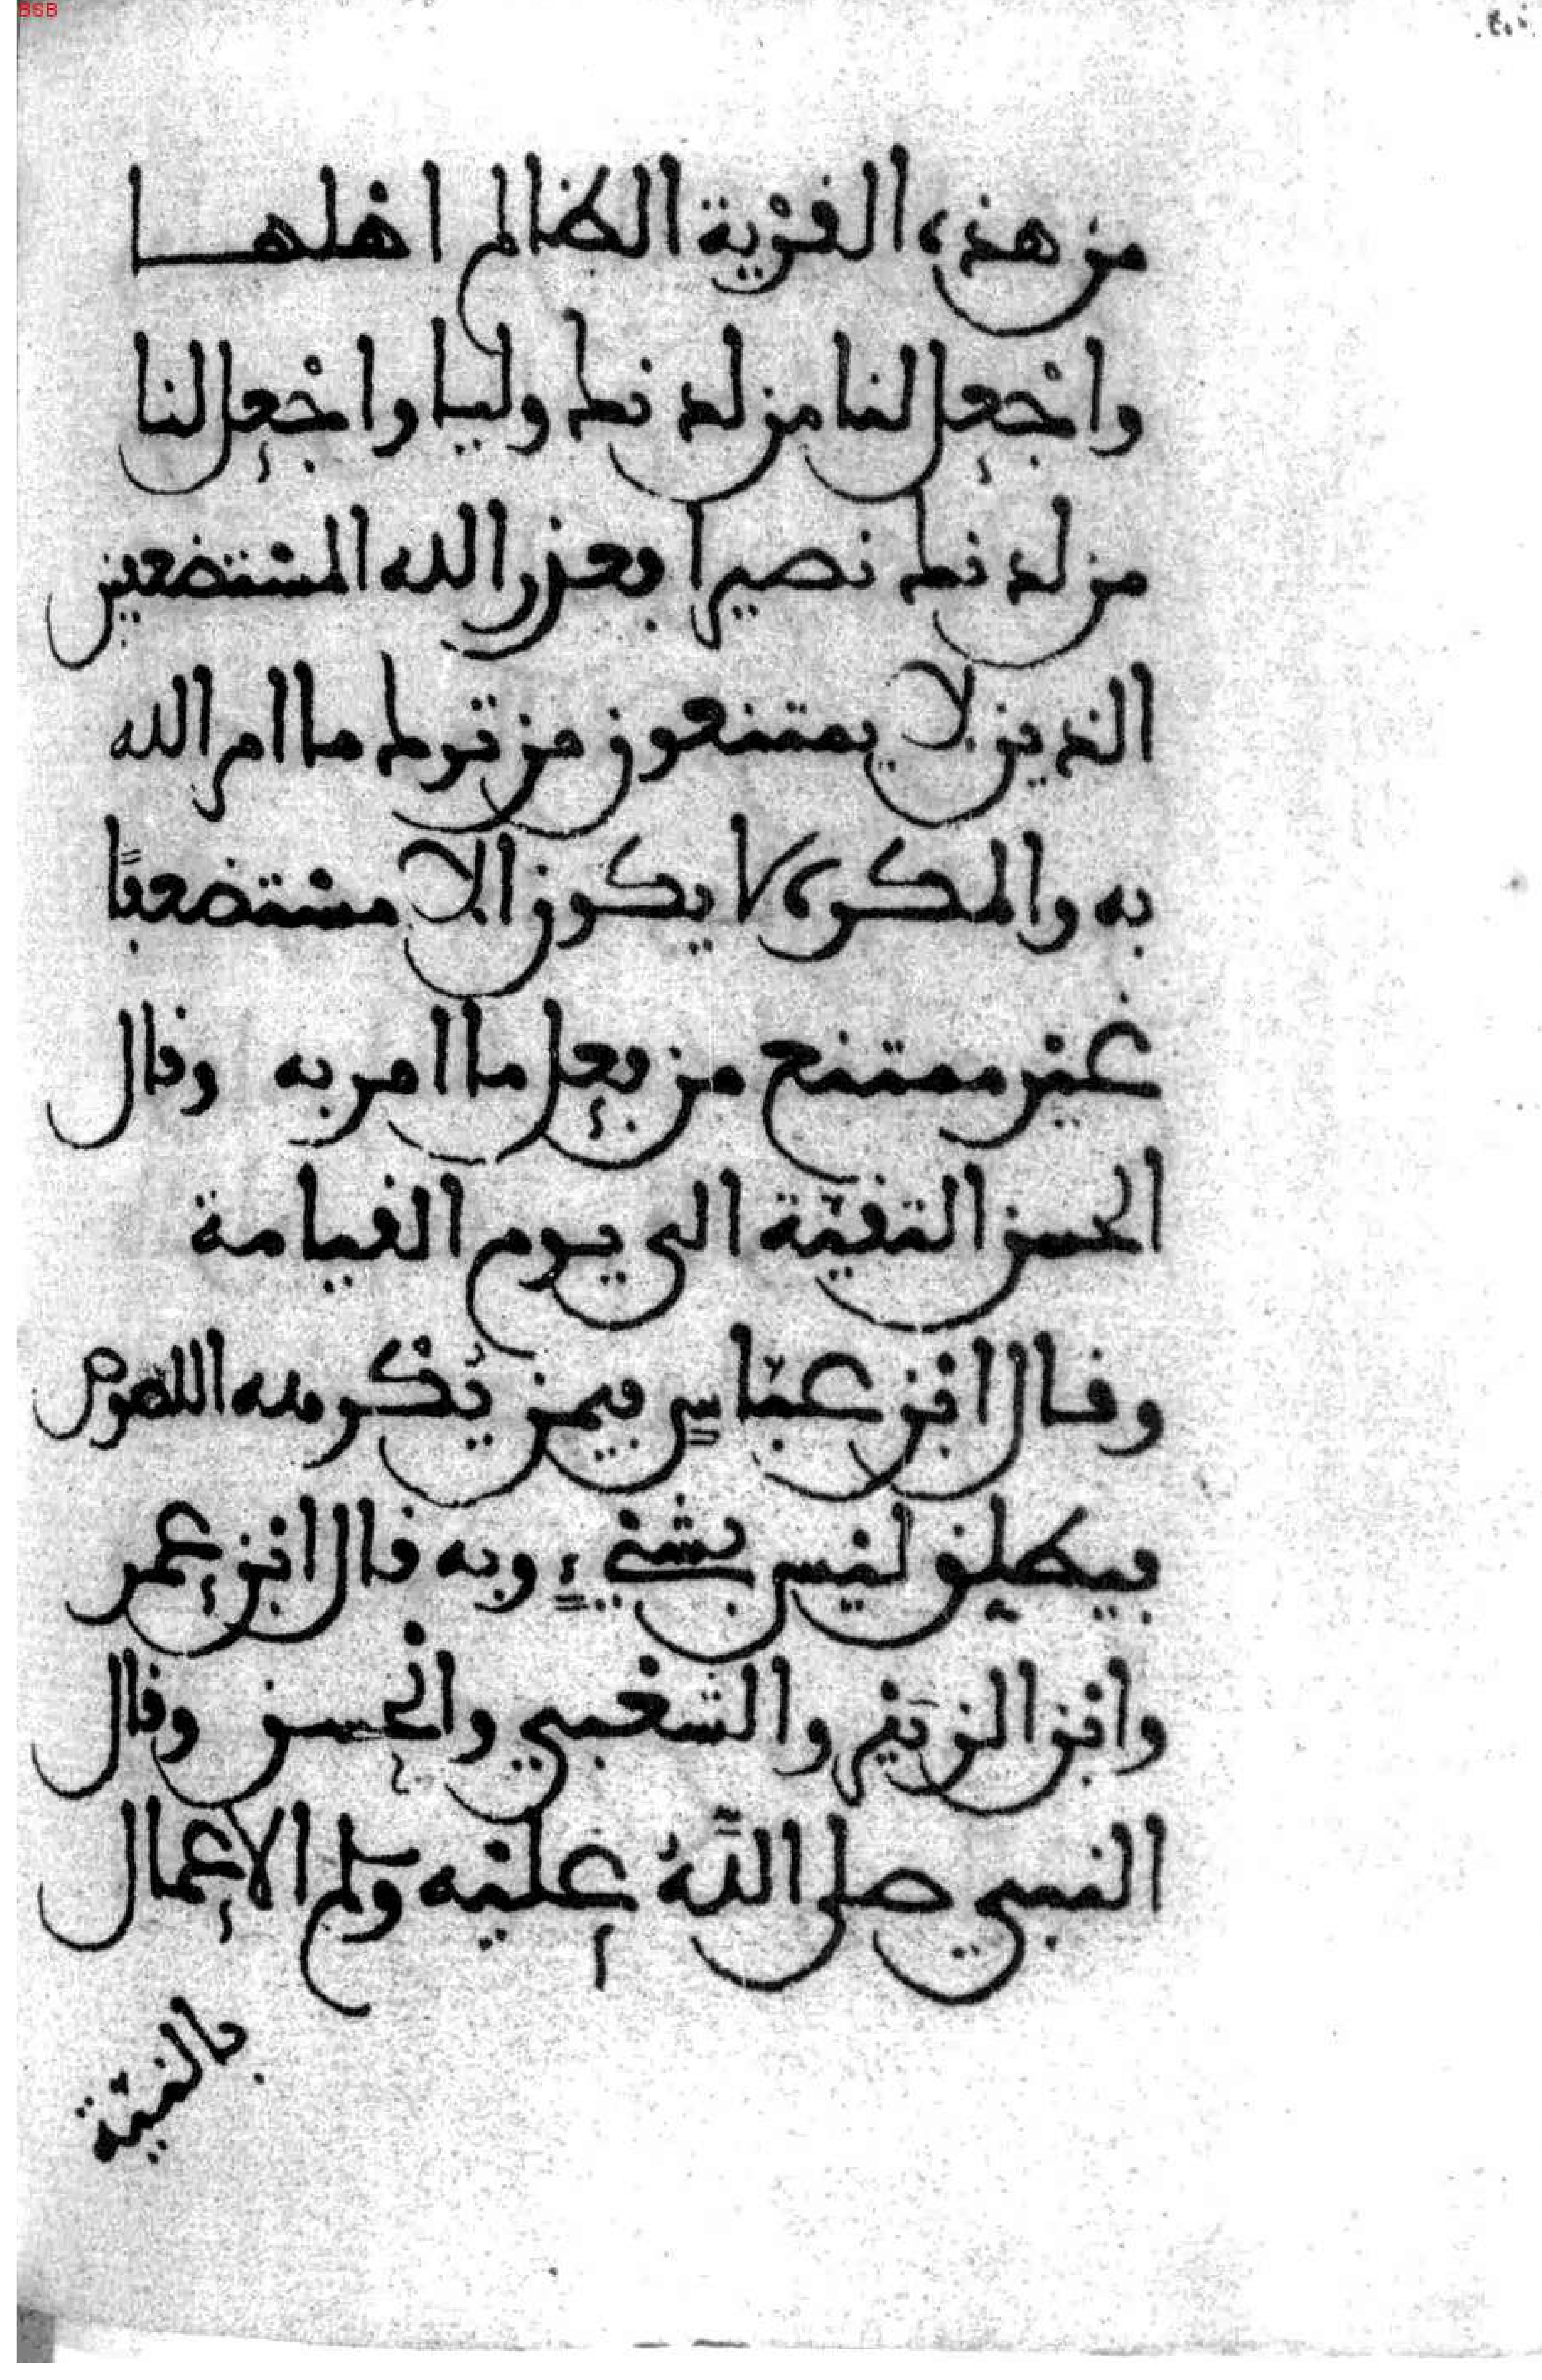 من هذه القرية الظالم اهلها
واجعل لنا من لدنك وليا واجعل لنا
من لدنك نصيرا فعزر الله المستضعفين
الذين لا يمتنعون من ترك ما امر الله
به والمكره لا يكون الا مستضعفا
غير ممتنع من فعل ما امر به وقال
الحسن التقية الى يوم القيامة
وقال ابن عباس فيمن يكرهه اللصوص
فيطلق ليس بشيء وبه قال ابن عمر
وابن الزبير والشعبي والحسن وقال
النبي صلى الله عليه وسلم الاعمال
بالنية
BSB